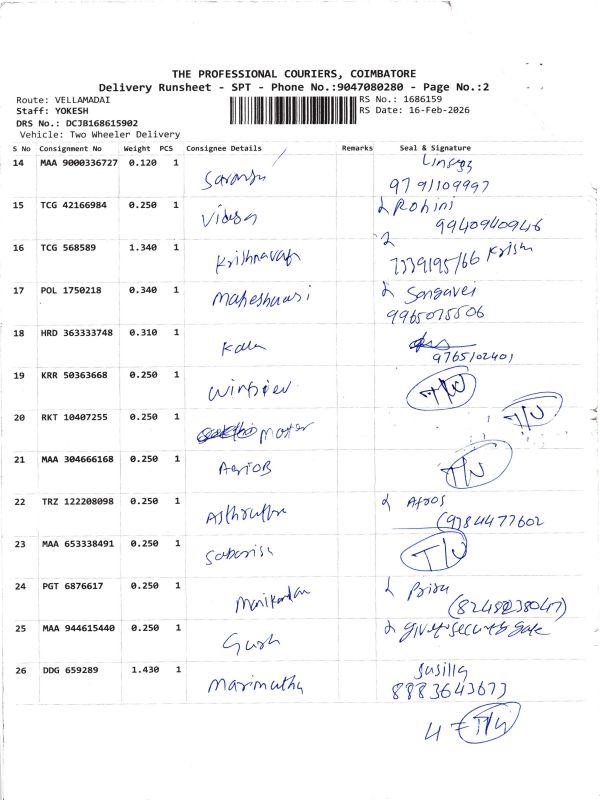 THE PROFESSIONAL COURIERS, COIMBATORE
Delivery Runsheet - SPT - Phone No.:9047080280 - Page No.:2
Route: VELLAMADAI
Staff: YOKESH
DRS No.: DCJB168615902
Vehicle: Two Wheeler Delivery
RS No.: 1686159
RS Date: 16-Feb-2026
S No Consignment No Weight PCS Consignee Details Remarks Seal & Signature
14 MAA 9000336727 0.120 1
9791109997
15 TCG 42166984 0.250 1 Rohini
9940940946
16 TCG 568589 1.340 1
7339195166
17 POL 1750218 0.340 1 Maheshwari
9965075506
18 HRD 363333748 0.310 1 Kala
9765102401
19 KRR 50363668 0.250 1 T/U
20 RKT 10407255 0.250 1 T/U
21 MAA 304666168 0.250 1 T/U
22 TRZ 122208098 0.250 1
(9384477602
23 MAA 653338491 0.250 1 T/U
24 PGT 6876617 0.250 1 Manikandan
25 MAA 944615440 0.250 1 security gate
26 DDG 659289 1.430 1 Marimuthu
8883643673
4 = T/U